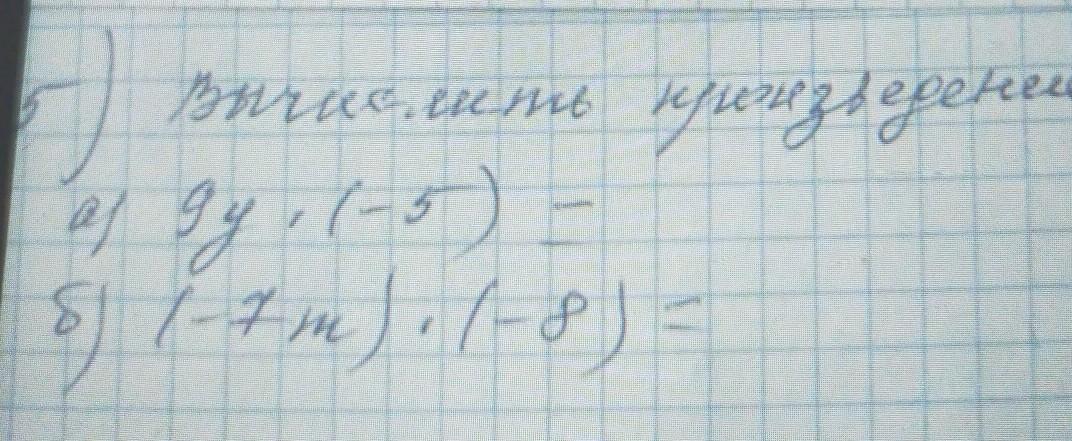 5) Вычислить произведени
а) 9y · (-5) =
б) (-7m) · (-8) =